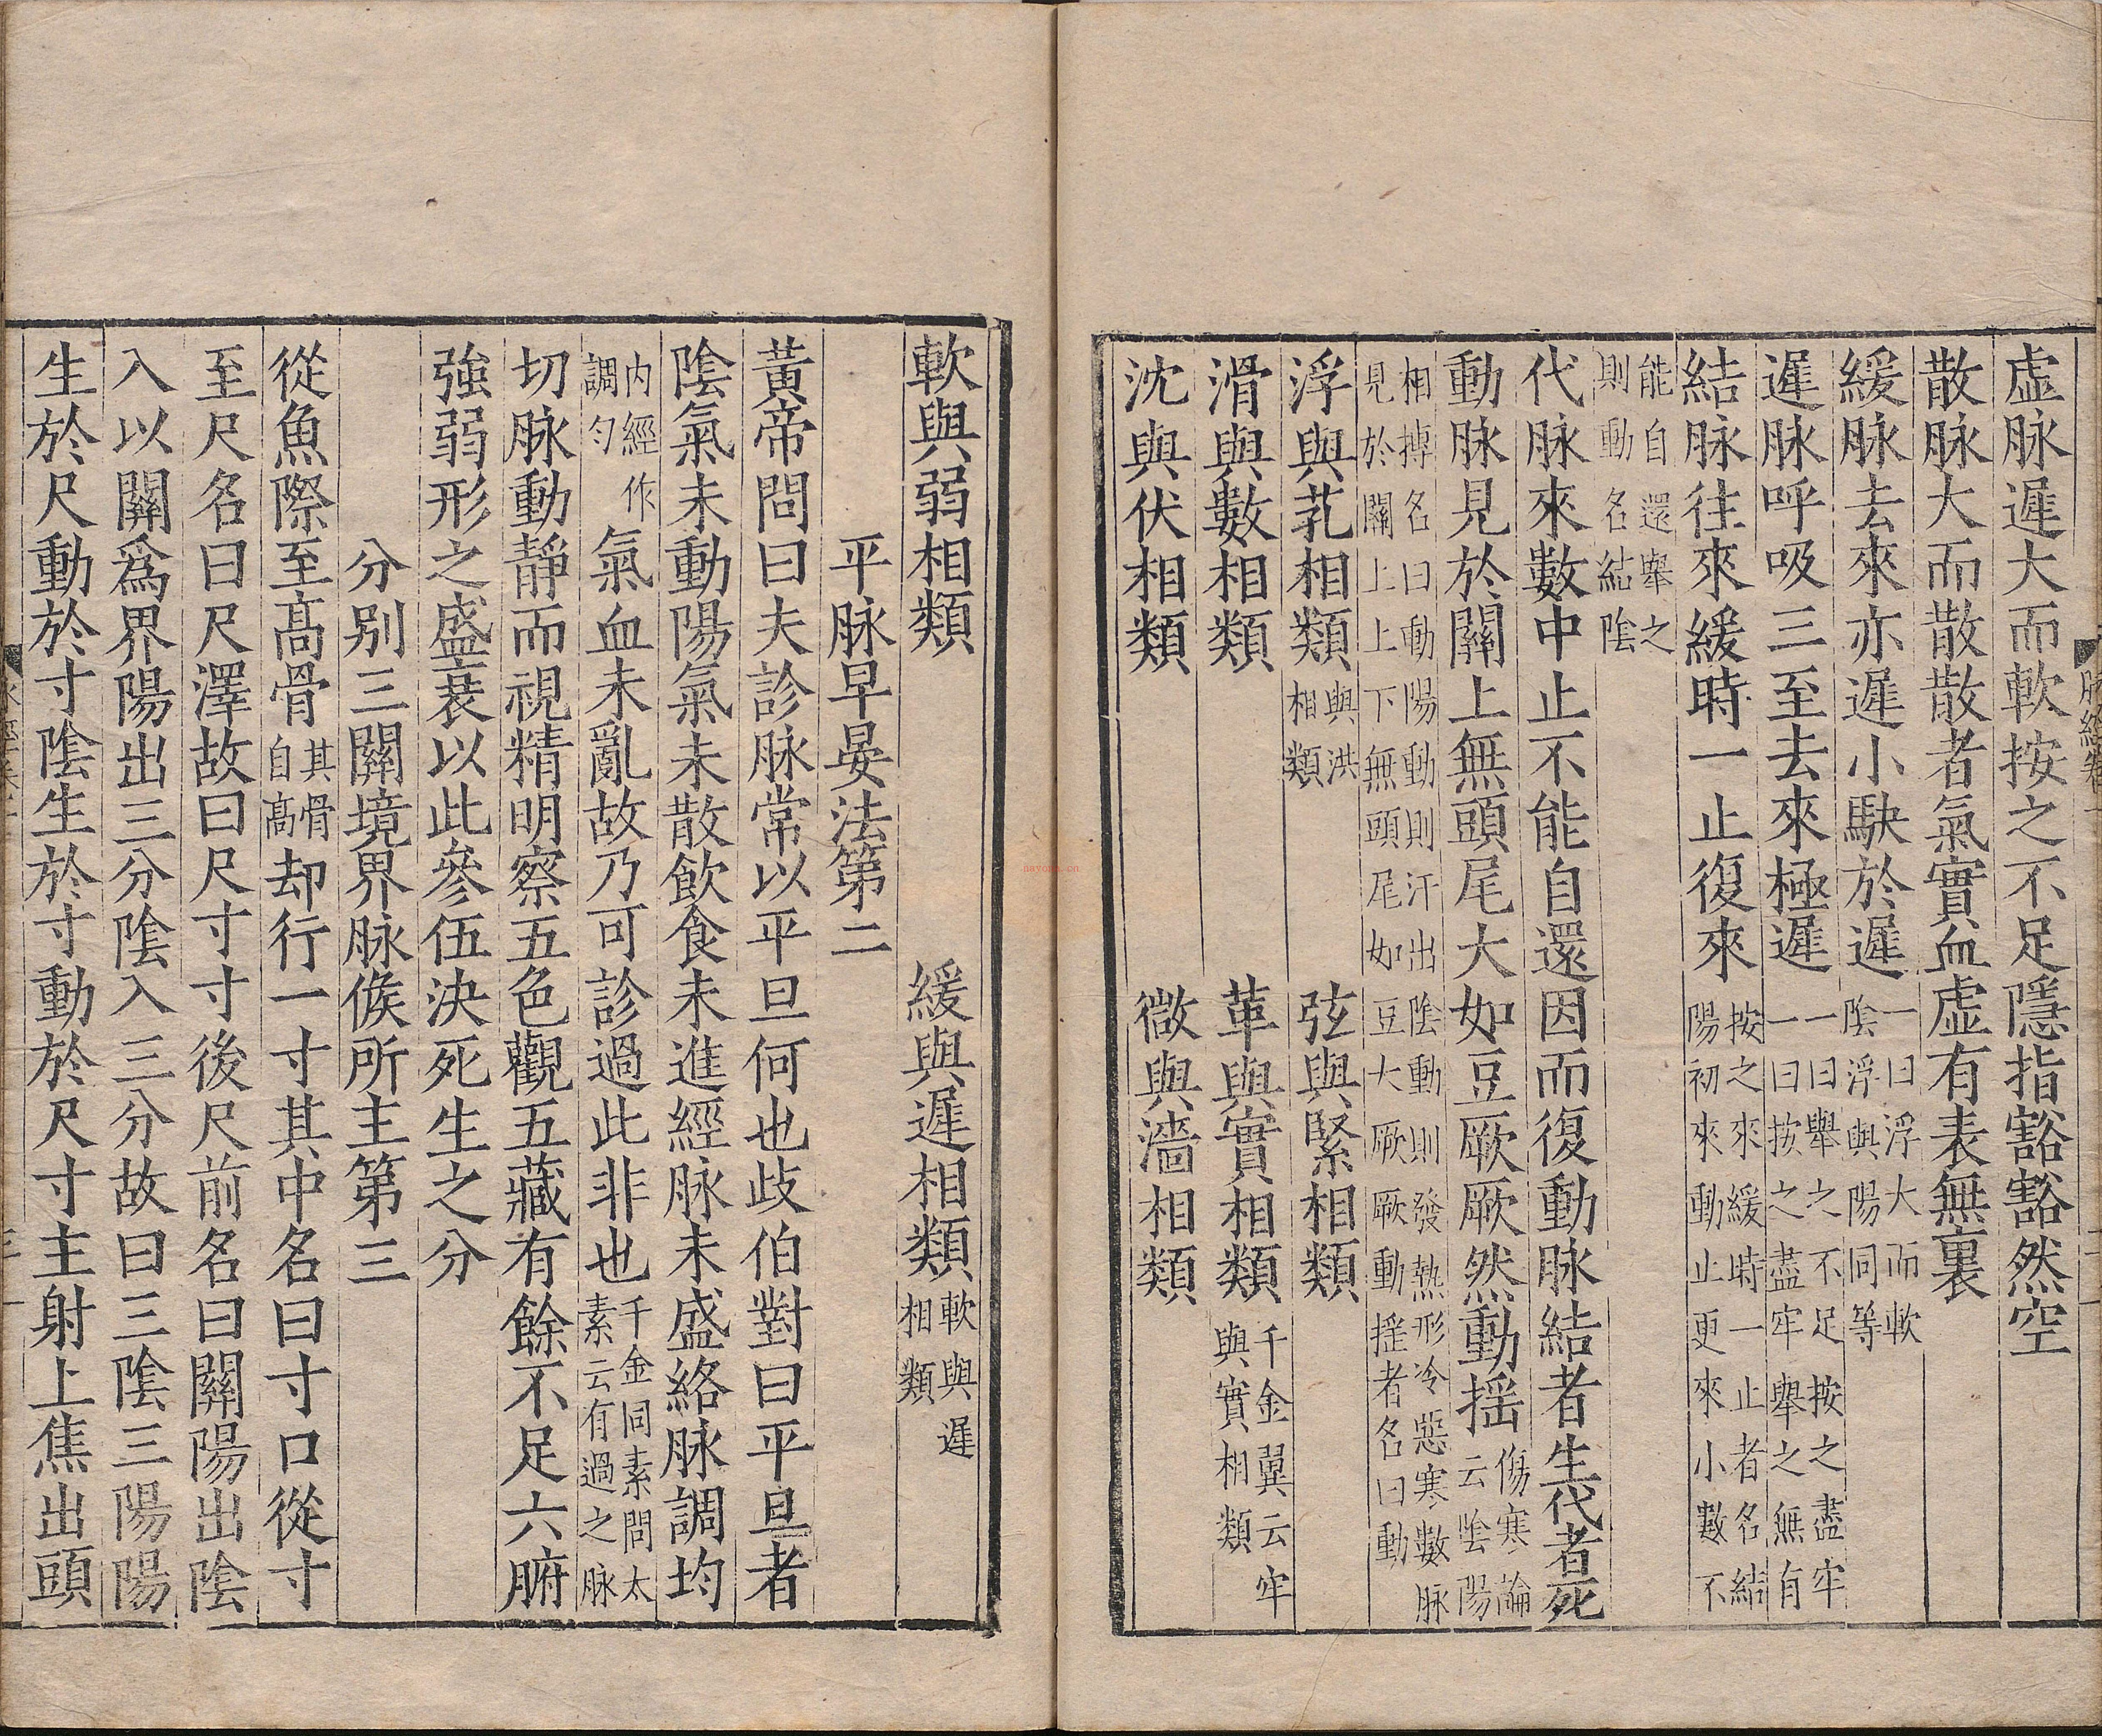 虛脉遲大而軟按之不足隱指豁豁然空
散脉大而散散者氣實血虛有表無裏
緩脉去來亦遲小駃於遲一曰浮大而軟陰浮與陽同等
遲脉呼吸三至去來極遲一曰舉之不足按之盡牢一曰按之盡牢舉之無有
結脉往來緩時一止復來按之來緩時一止者名結陽初來動止更來小數不
能自還舉之則動名結陰
代脉來數中止不能自還因而復動脉結者生代者死
動脉見於關上無頭尾大如豆厥厥然動搖傷寒論云陰陽
相摶名曰動陽動則汗出陰動則發熱形冷惡寒數脉見於關上上下無頭尾如豆大厥厥動揺者名曰動
浮與芤相類與洪相類 弦與緊相類
滑與數相類 革與實相類千金翼云牢與實相類
沈與伏相類 微與濇相類
軟與弱相類 緩與遲相類軟與遲相類
平脉早晏法第二
黃帝問曰夫診脉常以平旦何也歧伯對曰平旦者
陰氣未動陽氣未散飲食未進經脉未盛絡脉調均
內經作調勻氣血未亂故乃可診過此非也千金同素問太素云有過之脉
切脉動靜而視精明察五色觀五藏有餘不足六腑
強弱形之盛衰以此參伍決死生之分
分別三關境界脉候所主第三
從魚際至高骨其骨自高却行一寸其中名曰寸口從寸
至尺名曰尺澤故曰尺寸寸後尺前名曰關陽出陰
入以關爲界陽出三分陰入三分故曰三陰三陽陽
生於尺動於寸陰生於寸動於尺寸主射上焦出頭